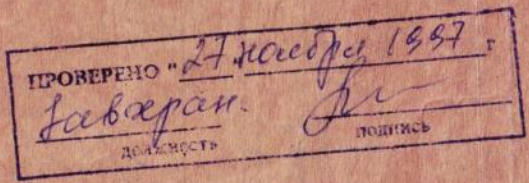 ПРОВЕРЕНО "27" ноября 1997 г
Завхран.
должность подпись